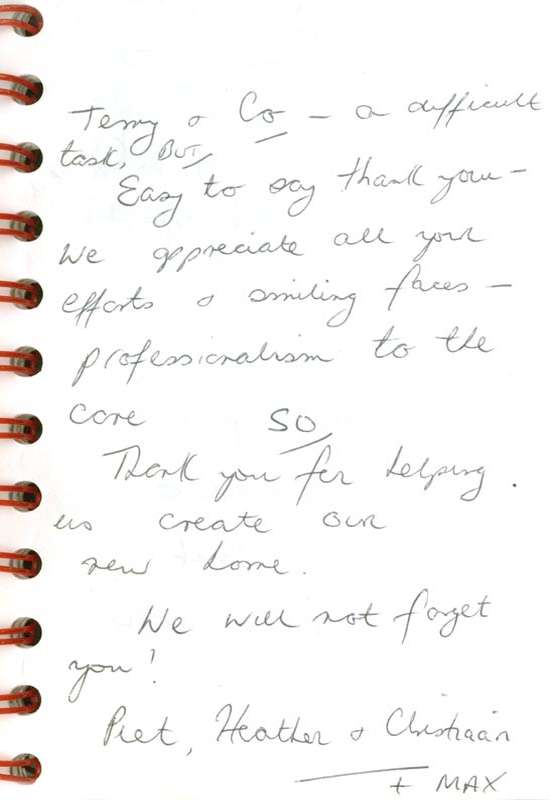 Terry & Co – a difficult
task, BUT
Easy to say thank you –
We appreciate all your
efforts & smiling faces –
professionalism to the
core SO
Thank you for helping.
us create our
new home.
We will not forget
you!
Piet, Heather & Christiaan
+ MAX